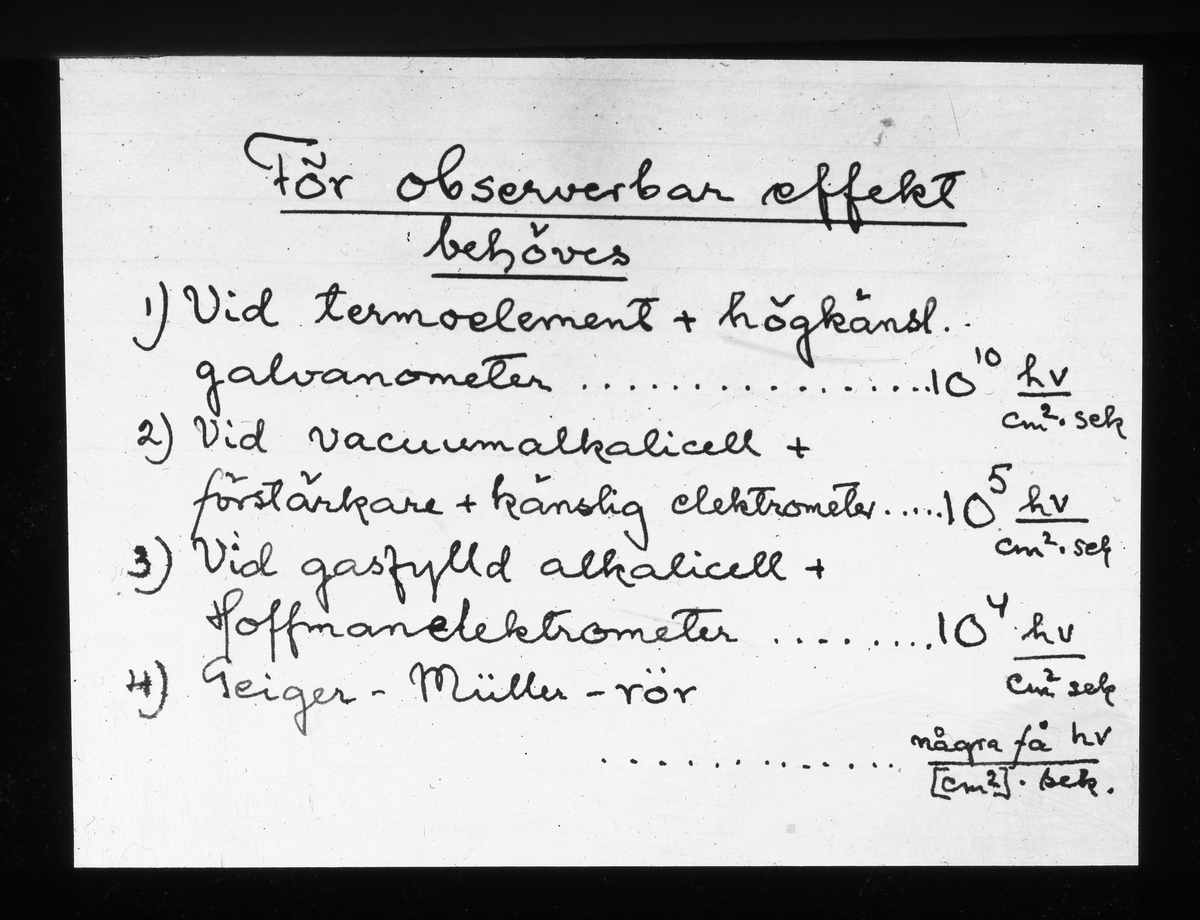 För observerbar effekt
behöves
1) Vid termoelement + högkänsl.
galvanometer ................10¹⁰ hν/cm²·sek
2) Vid vacuumalkalicell +
förstärkare + känslig elektrometer.....10⁵ hν/cm²·sek
3) Vid gasfylld alkalicell +
Hoffmanelektrometer ........10⁴ hν/cm² sek
4) Geiger - Müller - rör
.............. några få hν/[cm²]·sek.